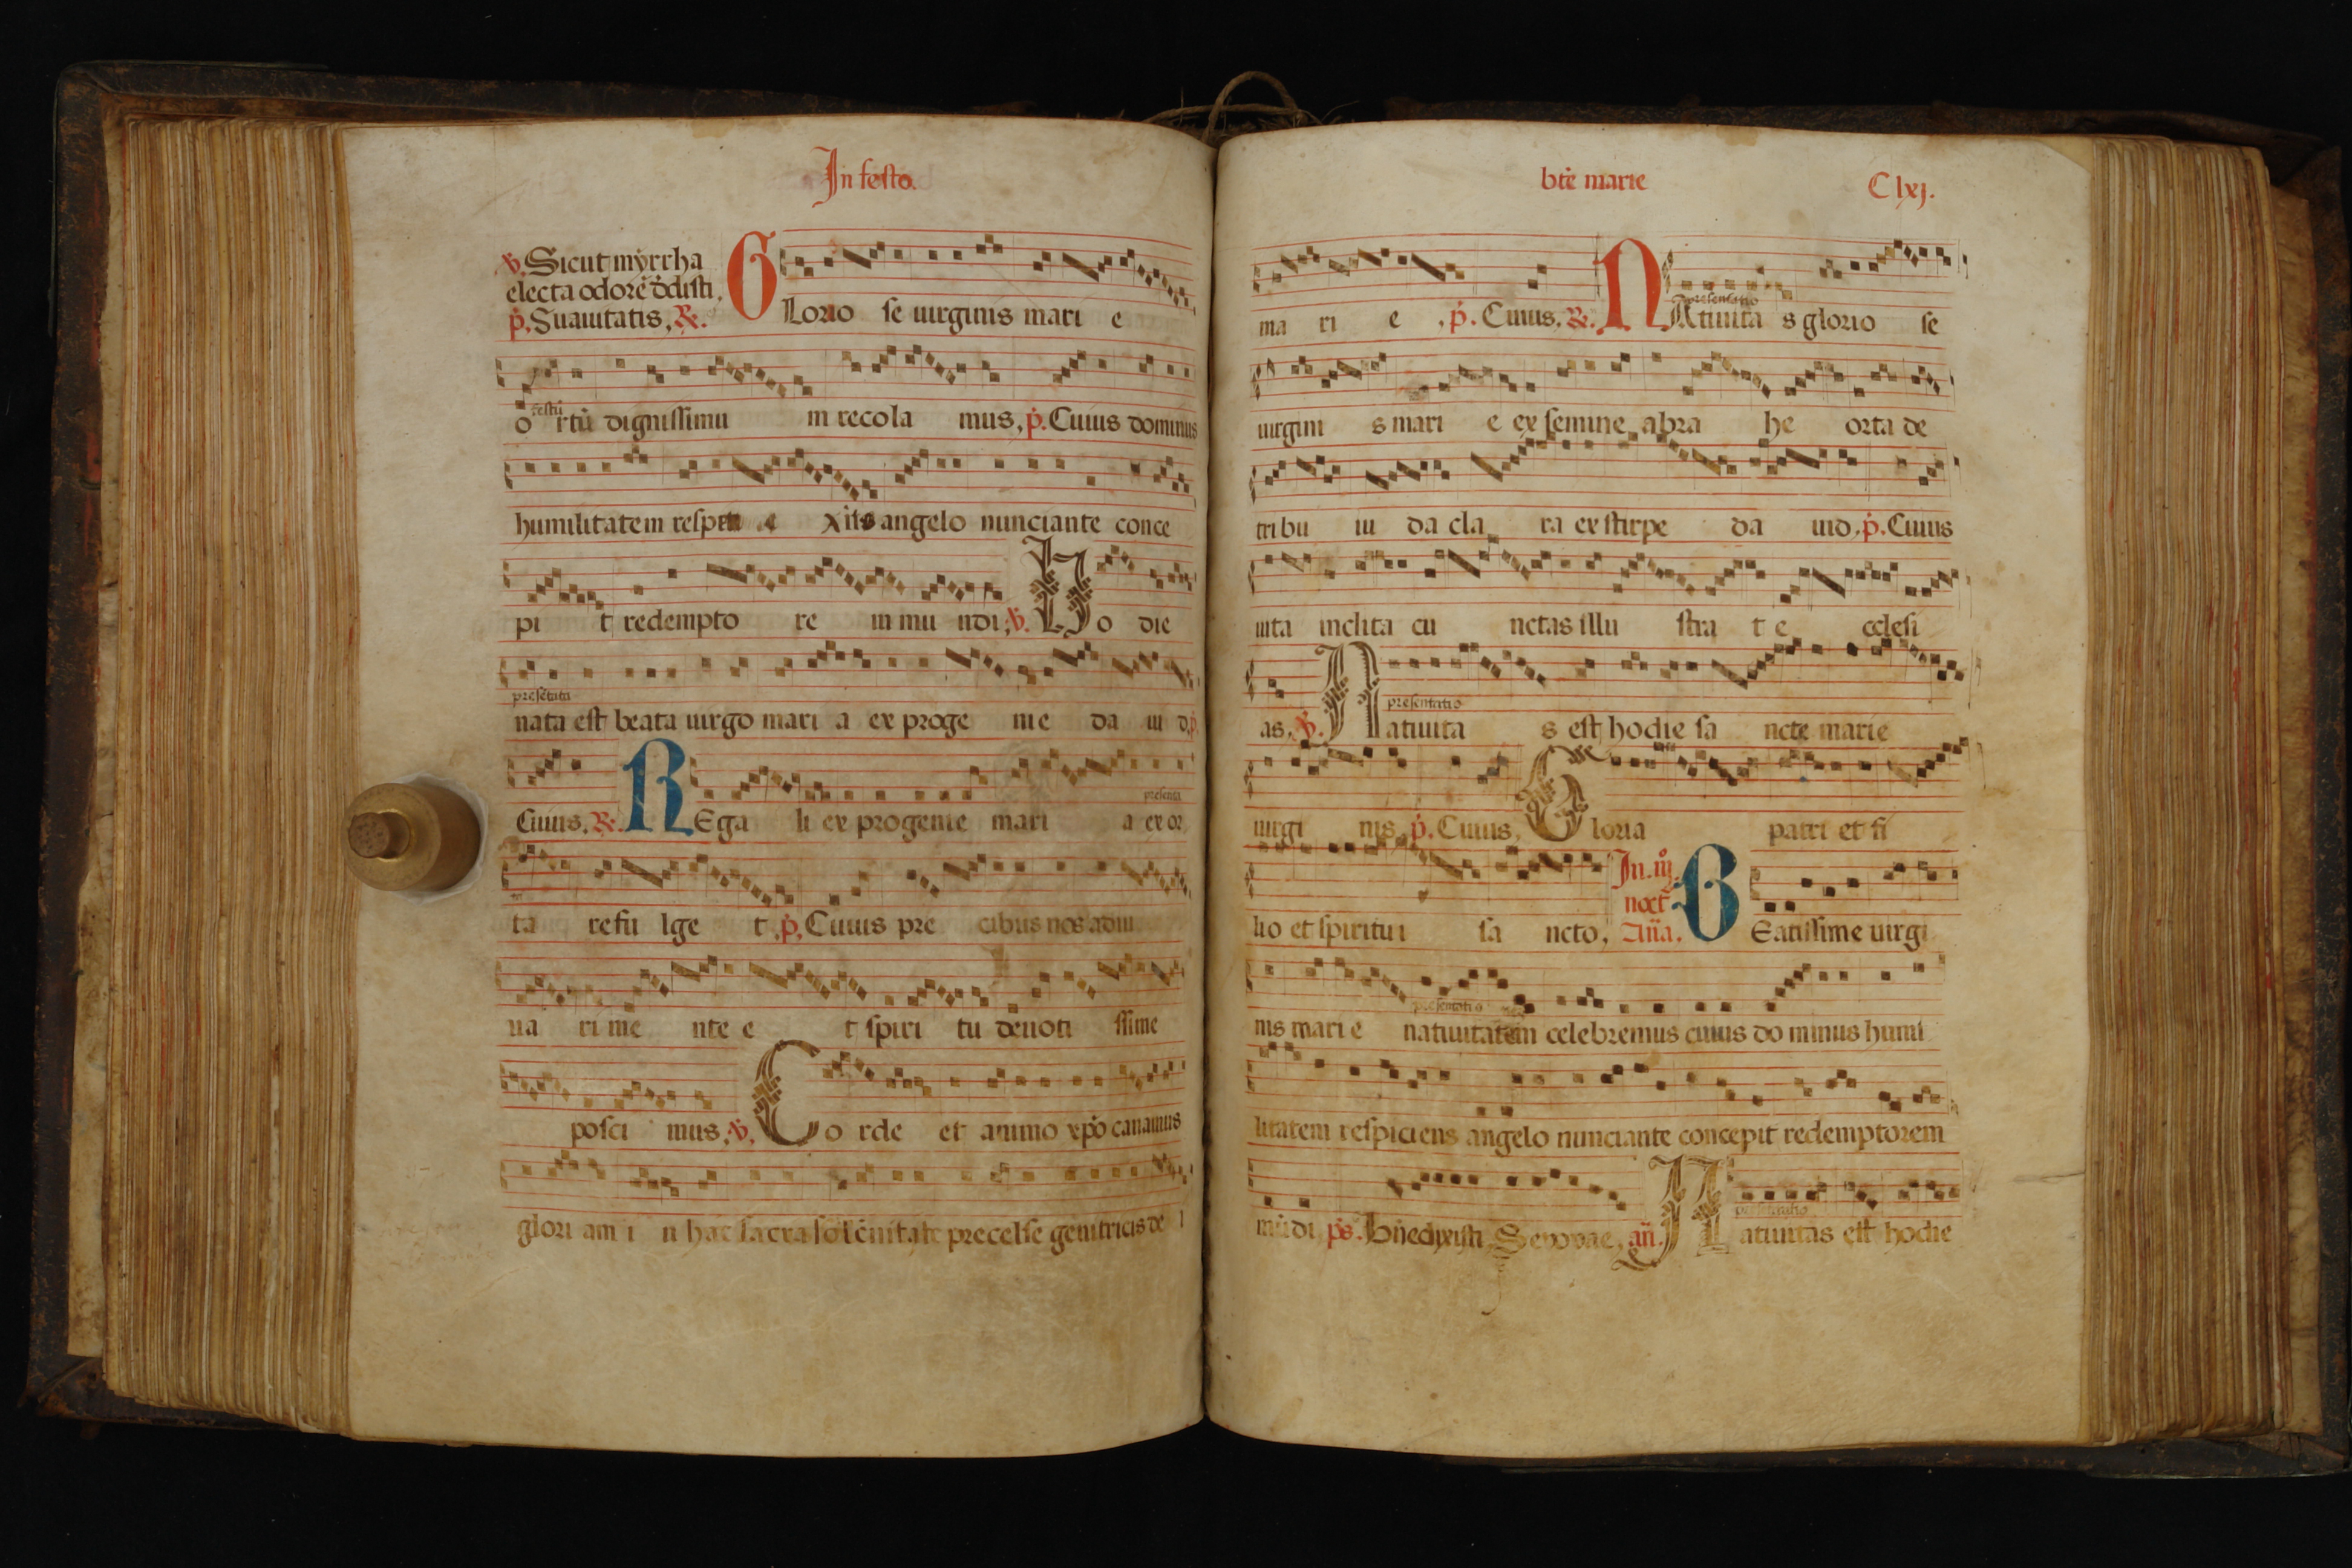 In festo.
℣. Sicut myrrha
electa odorē dedisti.
p̄. Suauitatis, ℟. GLorio se uirginis mari e
festū
o rtū dignissimu m recola mus, p̄. Cuius dominus
humilitatem respe xit angelo nunciante conce
pi t redempto re m mu ndi; ℣. Ho die
presētata
nata est beata uirgo mari a ex proge nie da ui d, p̄
Cuius. ℟. REga li ex progenie mari a ex or
presenta
ta refu lge t, p̄, Cuius pre cibus nos adiu
ua ri me nte e t spiri tu deuoti ssime
posci mus, ℣, Co rde et animo xp̄o canamus
glori am i n hac sacra solēnitate precelse genitricis de i
btē marie
C lxj.
ma ri e , p̄. Cuius, ℟. NAtiuita s glorio se
presentatio
uirgini s mari e ex semine abra he orta de
tribu iu da cla ra ex stirpe da uid, p̄. Cuius
uita inclita cu nctas illu stra t e cclesi
presentatio
as, ℣. Natiuita s est hodie sa ncte marie
uirgi nis, p̄. Cuius, Gloria patri et fi
In. iij.
noct
lio et spiritui sa ncto, Añа. BEatissime uirgi
presentatio
nis mari e natiuitatem celebremus cuius do minus humi
litatem respiciens angelo nunciante concepit redemptorem
presentatio
mūdi, ps. Bñedixisti, Seuouae, añ. Natiuitas est hodie